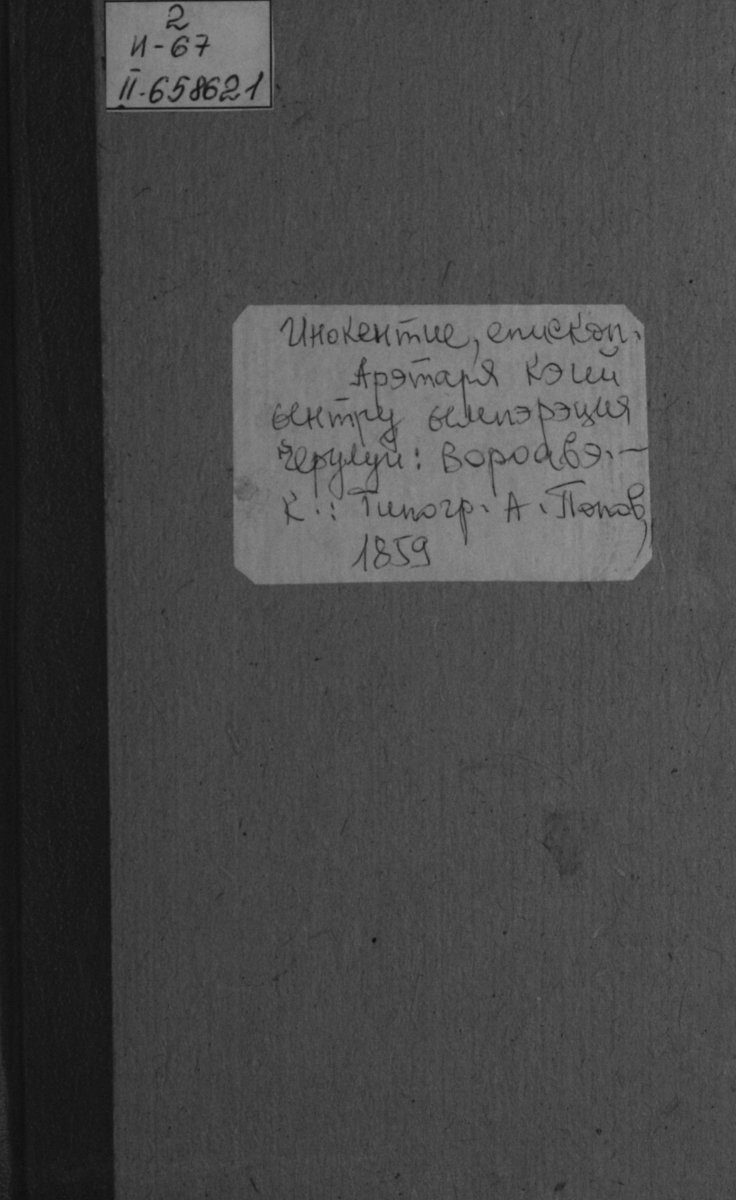 2
И-67
II-658621
Инокентие, епископ.
Арэтаря кэий
ынтру ымпэрэция
черулуй: Вороавэ. –
К.: Типогр. А. Попов,
1859